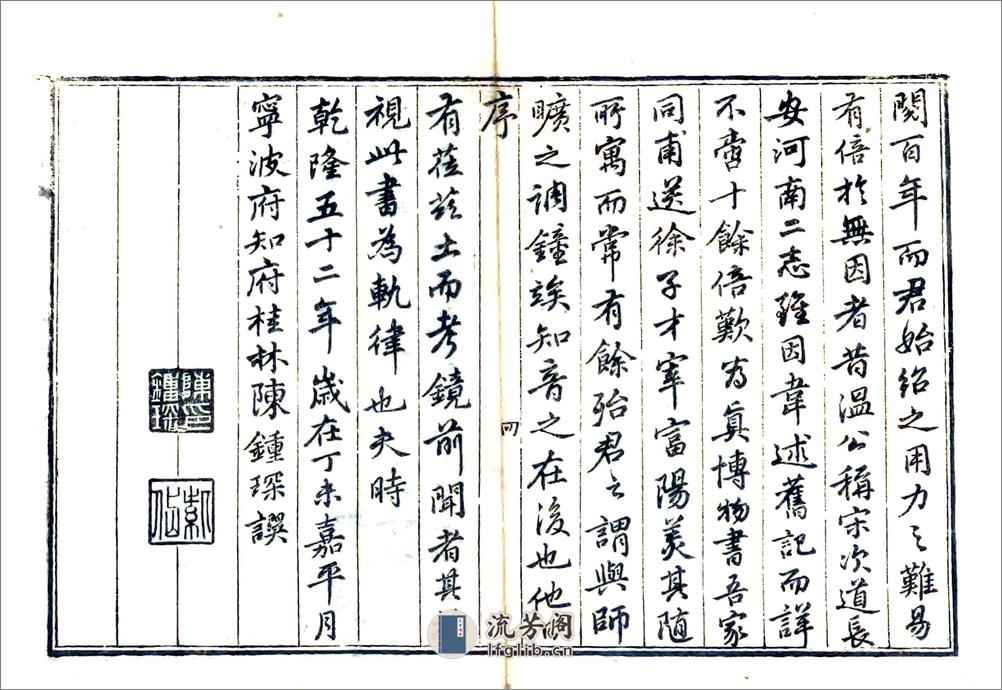 閱百年而君始紹之用力之難易
有倍於無因者昔溫公稱宋次道長
安河南二志雖因韋述舊記而詳
不啻十餘倍歎為真博物書吾家
同甫送徐子才宰富陽羨其隨
所寓而常有餘殆君之謂與師
曠之調鐘俟知音之在後也他
序
四
有莅茲土而考鏡前聞者其
視此書為軌律也夫時
乾隆五十二年歲在丁未嘉平月
寧波府知府桂林陳鍾琛譔
陳印鍾琛
流芳阁
lfglib.cn